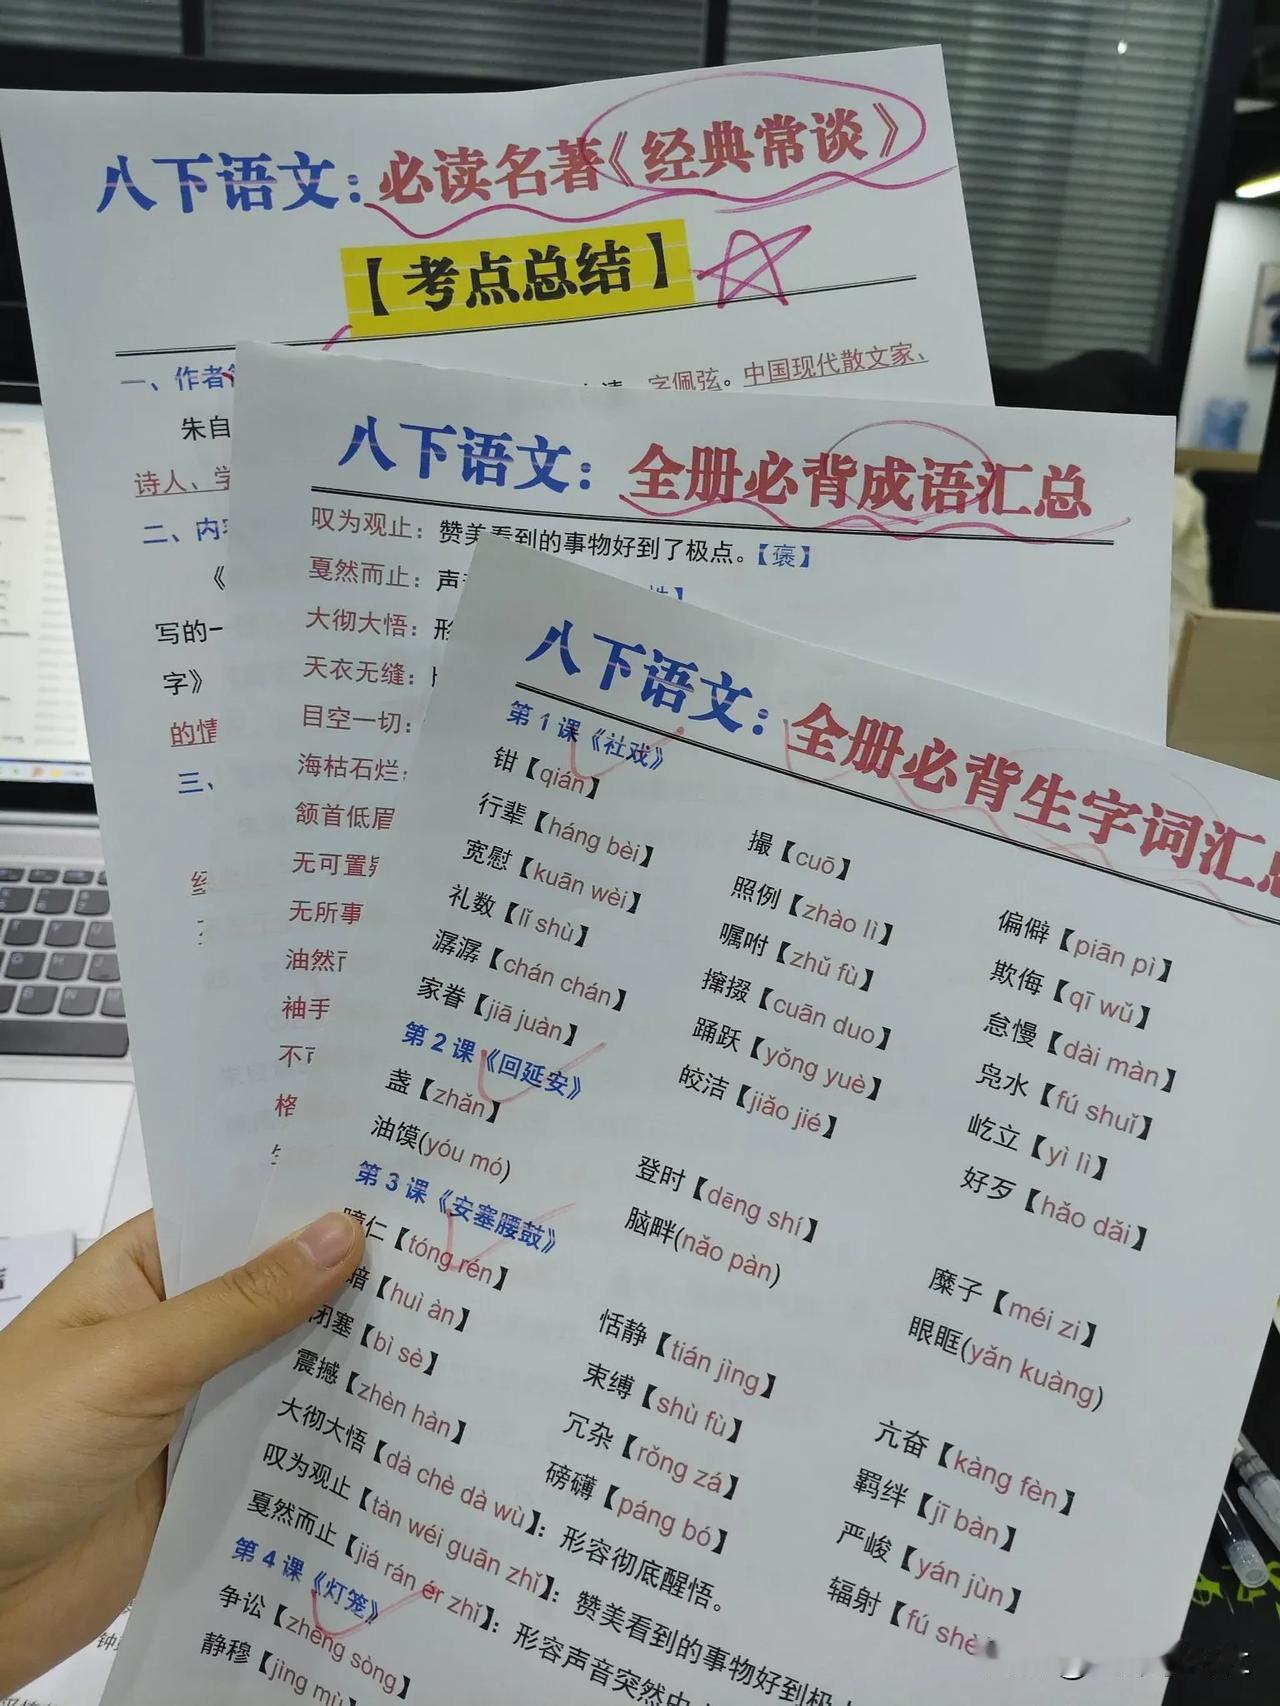 八下语文：必读名著《经典常谈》
【考点总结】
一、作者
字佩弦。中国现代散文家、
朱自
诗人、学
二、内
《
写的一
字》
的情
三、
八下语文：全册必背成语汇总
叹为观止：赞美看到的事物好到了极点。【褒】
戛然而止：声
大彻大悟：形
天衣无缝：
目空一切：
海枯石烂：
颔首低眉
无可置疑
无所事
油然
袖手
不可
格
八下语文：全册必背生字词汇总
第1课《社戏》
钳【qián】
行辈【háng bèi】 撮【cuō】
宽慰【kuān wèi】 照例【zhào lì】 偏僻【piān pì】
礼数【lǐ shù】 嘱咐【zhǔ fù】 欺侮【qī wǔ】
潺潺【chán chán】 撺掇【cuān duo】 怠慢【dài màn】
家眷【jiā juàn】 踊跃【yǒng yuè】 凫水【fú shuǐ】
皎洁【jiǎo jié】 屹立【yì lì】
好歹【hǎo dǎi】
第2课《回延安》
盏【zhǎn】 登时【dēng shí】 糜子【méi zi】
油馍(yóu mó) 脑畔(nǎo pàn) 眼眶(yǎn kuàng)
第3课《安塞腰鼓》
仁【tóng rén】 恬静【tián jìng】 亢奋【kàng fèn】
暗【huì àn】 束缚【shù fù】 羁绊【jī bàn】
闭塞【bì sè】 冗杂【rǒng zá】 严峻【yán jùn】
震撼【zhèn hàn】 磅礴【páng bó】 辐射【fú shè
大彻大悟【dà chè dà wù】：形容彻底醒悟。
叹为观止【tàn wéi guān zhǐ】：赞美看到的事物好到极
戛然而止【jiá rán ér zhǐ】：形容声音突然中
第4课《灯笼》
争讼【zhēng sòng】
静穆【jìng mù】